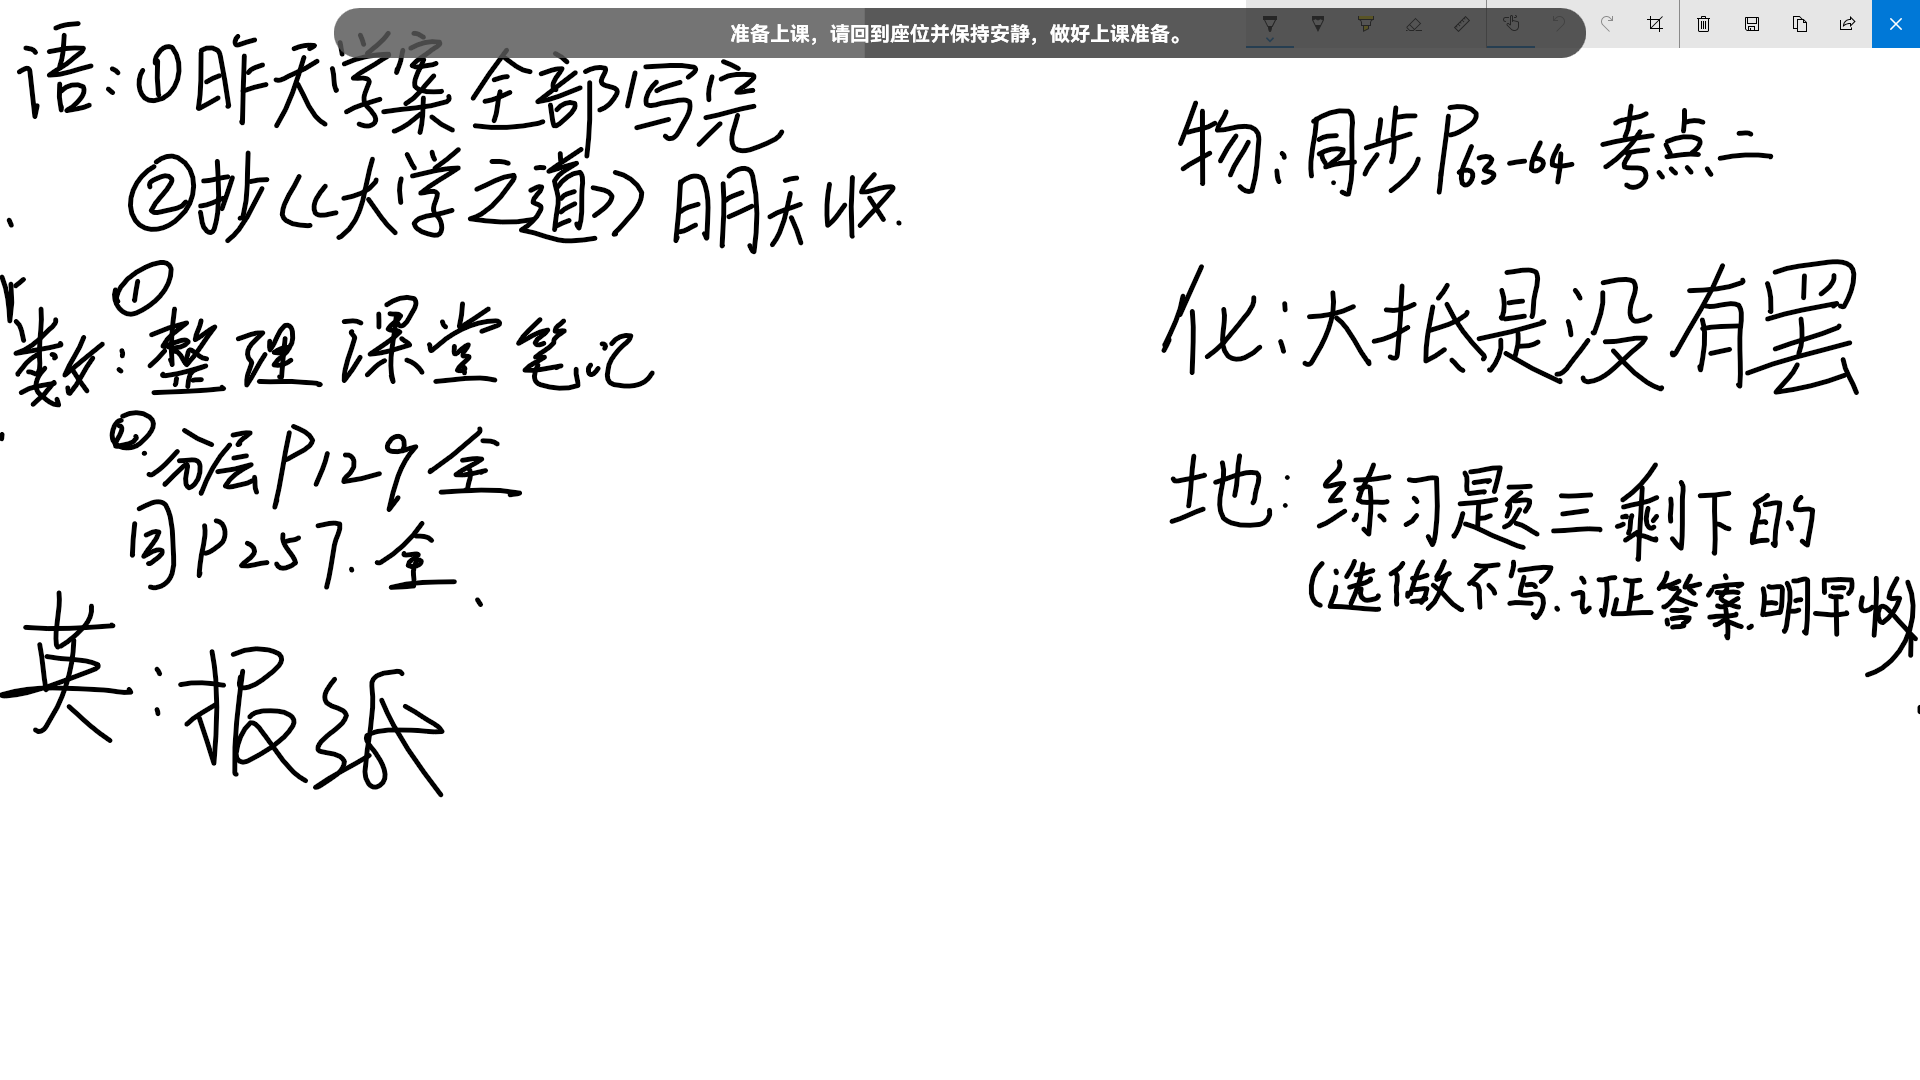 准备上课，请回到座位并保持安静，做好上课准备。
语：①昨天学案全部写完
②抄《大学之道》明天收.
数：①整理课堂笔记
②分层P129全
同P257.全
英：报纸
物：同步P63-64 考点二
化：大抵是没有罢
地：练习题三剩下的
(选做不写.订正答案.明早收)